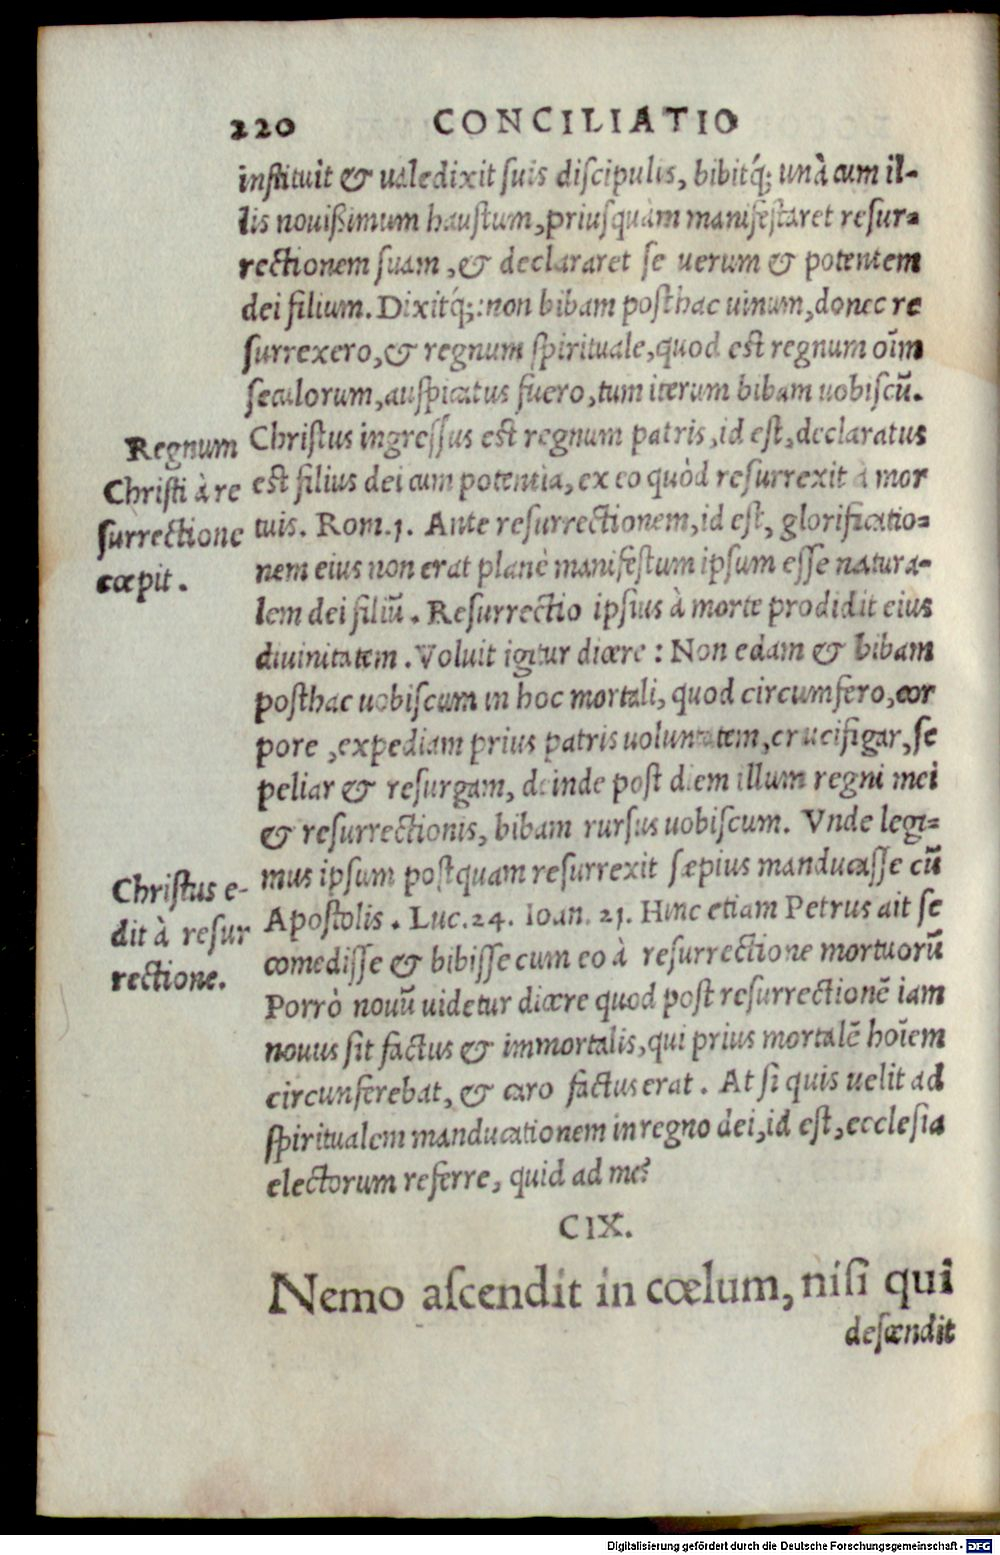 220 CONCILIATIO
instituit & ualedixit suis discipulis, bibitq́; unà cum il-
lis nouißimum haustum, priusquàm manifestaret resur-
rectionem suam, & declararet se uerum & potentem
dei filium. Dixitq́;: non bibam posthac uinum, donec re
surrexero, & regnum spirituale, quod est regnum oīm
seculorum, auspicatus fuero, tum iterum bibam uobiscū.
Christus ingressus est regnum patris, id est, declaratus
est filius dei cum potentia, ex eo quòd resurrexit à mor
tuis. Rom.1. Ante resurrectionem, id est, glorificatio-
nem eius non erat planè manifestum ipsum esse natura-
lem dei filiū. Resurrectio ipsius à morte prodidit eius
diuinitatem. Voluit igitur dicere: Non edam & bibam
posthac uobiscum in hoc mortali, quod circumfero, cor
pore, expediam prius patris uoluntatem, crucifigar, se
peliar & resurgam, deinde post diem illum regni mei
& resurrectionis, bibam rursus uobiscum. Vnde legi-
mus ipsum postquam resurrexit sæpius manducasse cū
Apostolis. Luc.24. Ioan. 21. Hinc etiam Petrus ait se
comedisse & bibisse cum eo à resurrectione mortuorū
Porrò nouū uidetur dicere quod post resurrectionē iam
nouus sit factus & immortalis, qui prius mortalē hoīem
circunferebat, & caro factus erat. At si quis uelit ad
spiritualem manducationem in regno dei, id est, ecclesia
electorum referre, quid ad me?
Regnum
Christi à re
surrectione
cœpit.
Christus e-
dit à resur
rectione.
CIX.
Nemo ascendit in cœlum, nisi qui
descendit
Digitalisierung gefördert durch die Deutsche Forschungsgemeinschaft - DFG